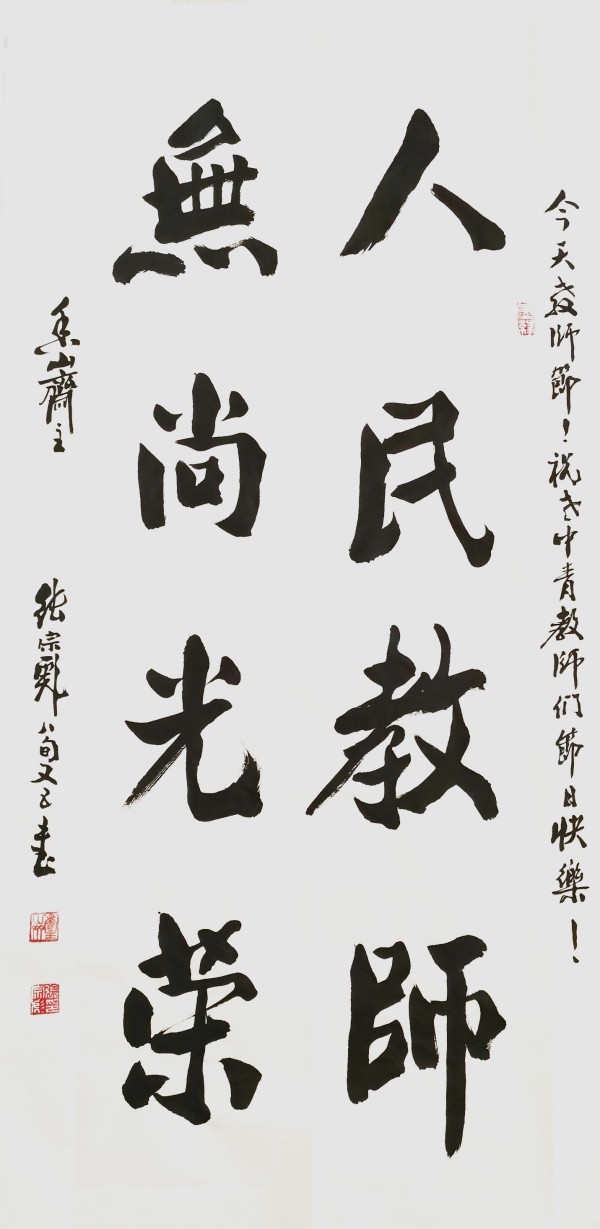 今天教師節！祝老中青教師们節日快樂！
人民教師
無尚光榮
香山齋主
張宗彪八旬又五書